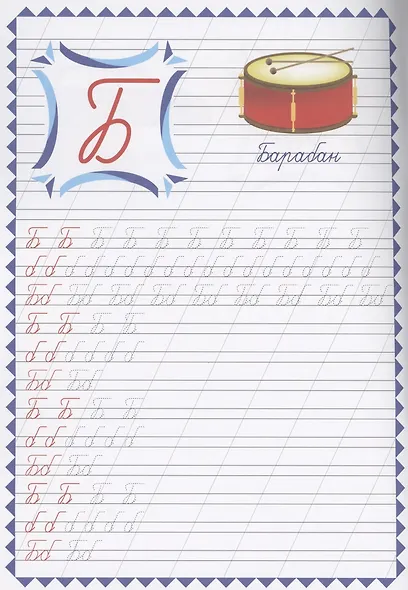 Б
Барабан
Б Б Б Б Б Б Б Б Б Б Б
б б б б б б б б б б б б б б б б б б
Бб Бб Бб Бб Бб Бб Бб Бб Бб
Б Б Б Б
б б б б б б
Бб Бб
Б Б Б Б
б б б б б б
Бб Бб
Б Б Б Б
б б б б б б
Бб Бб